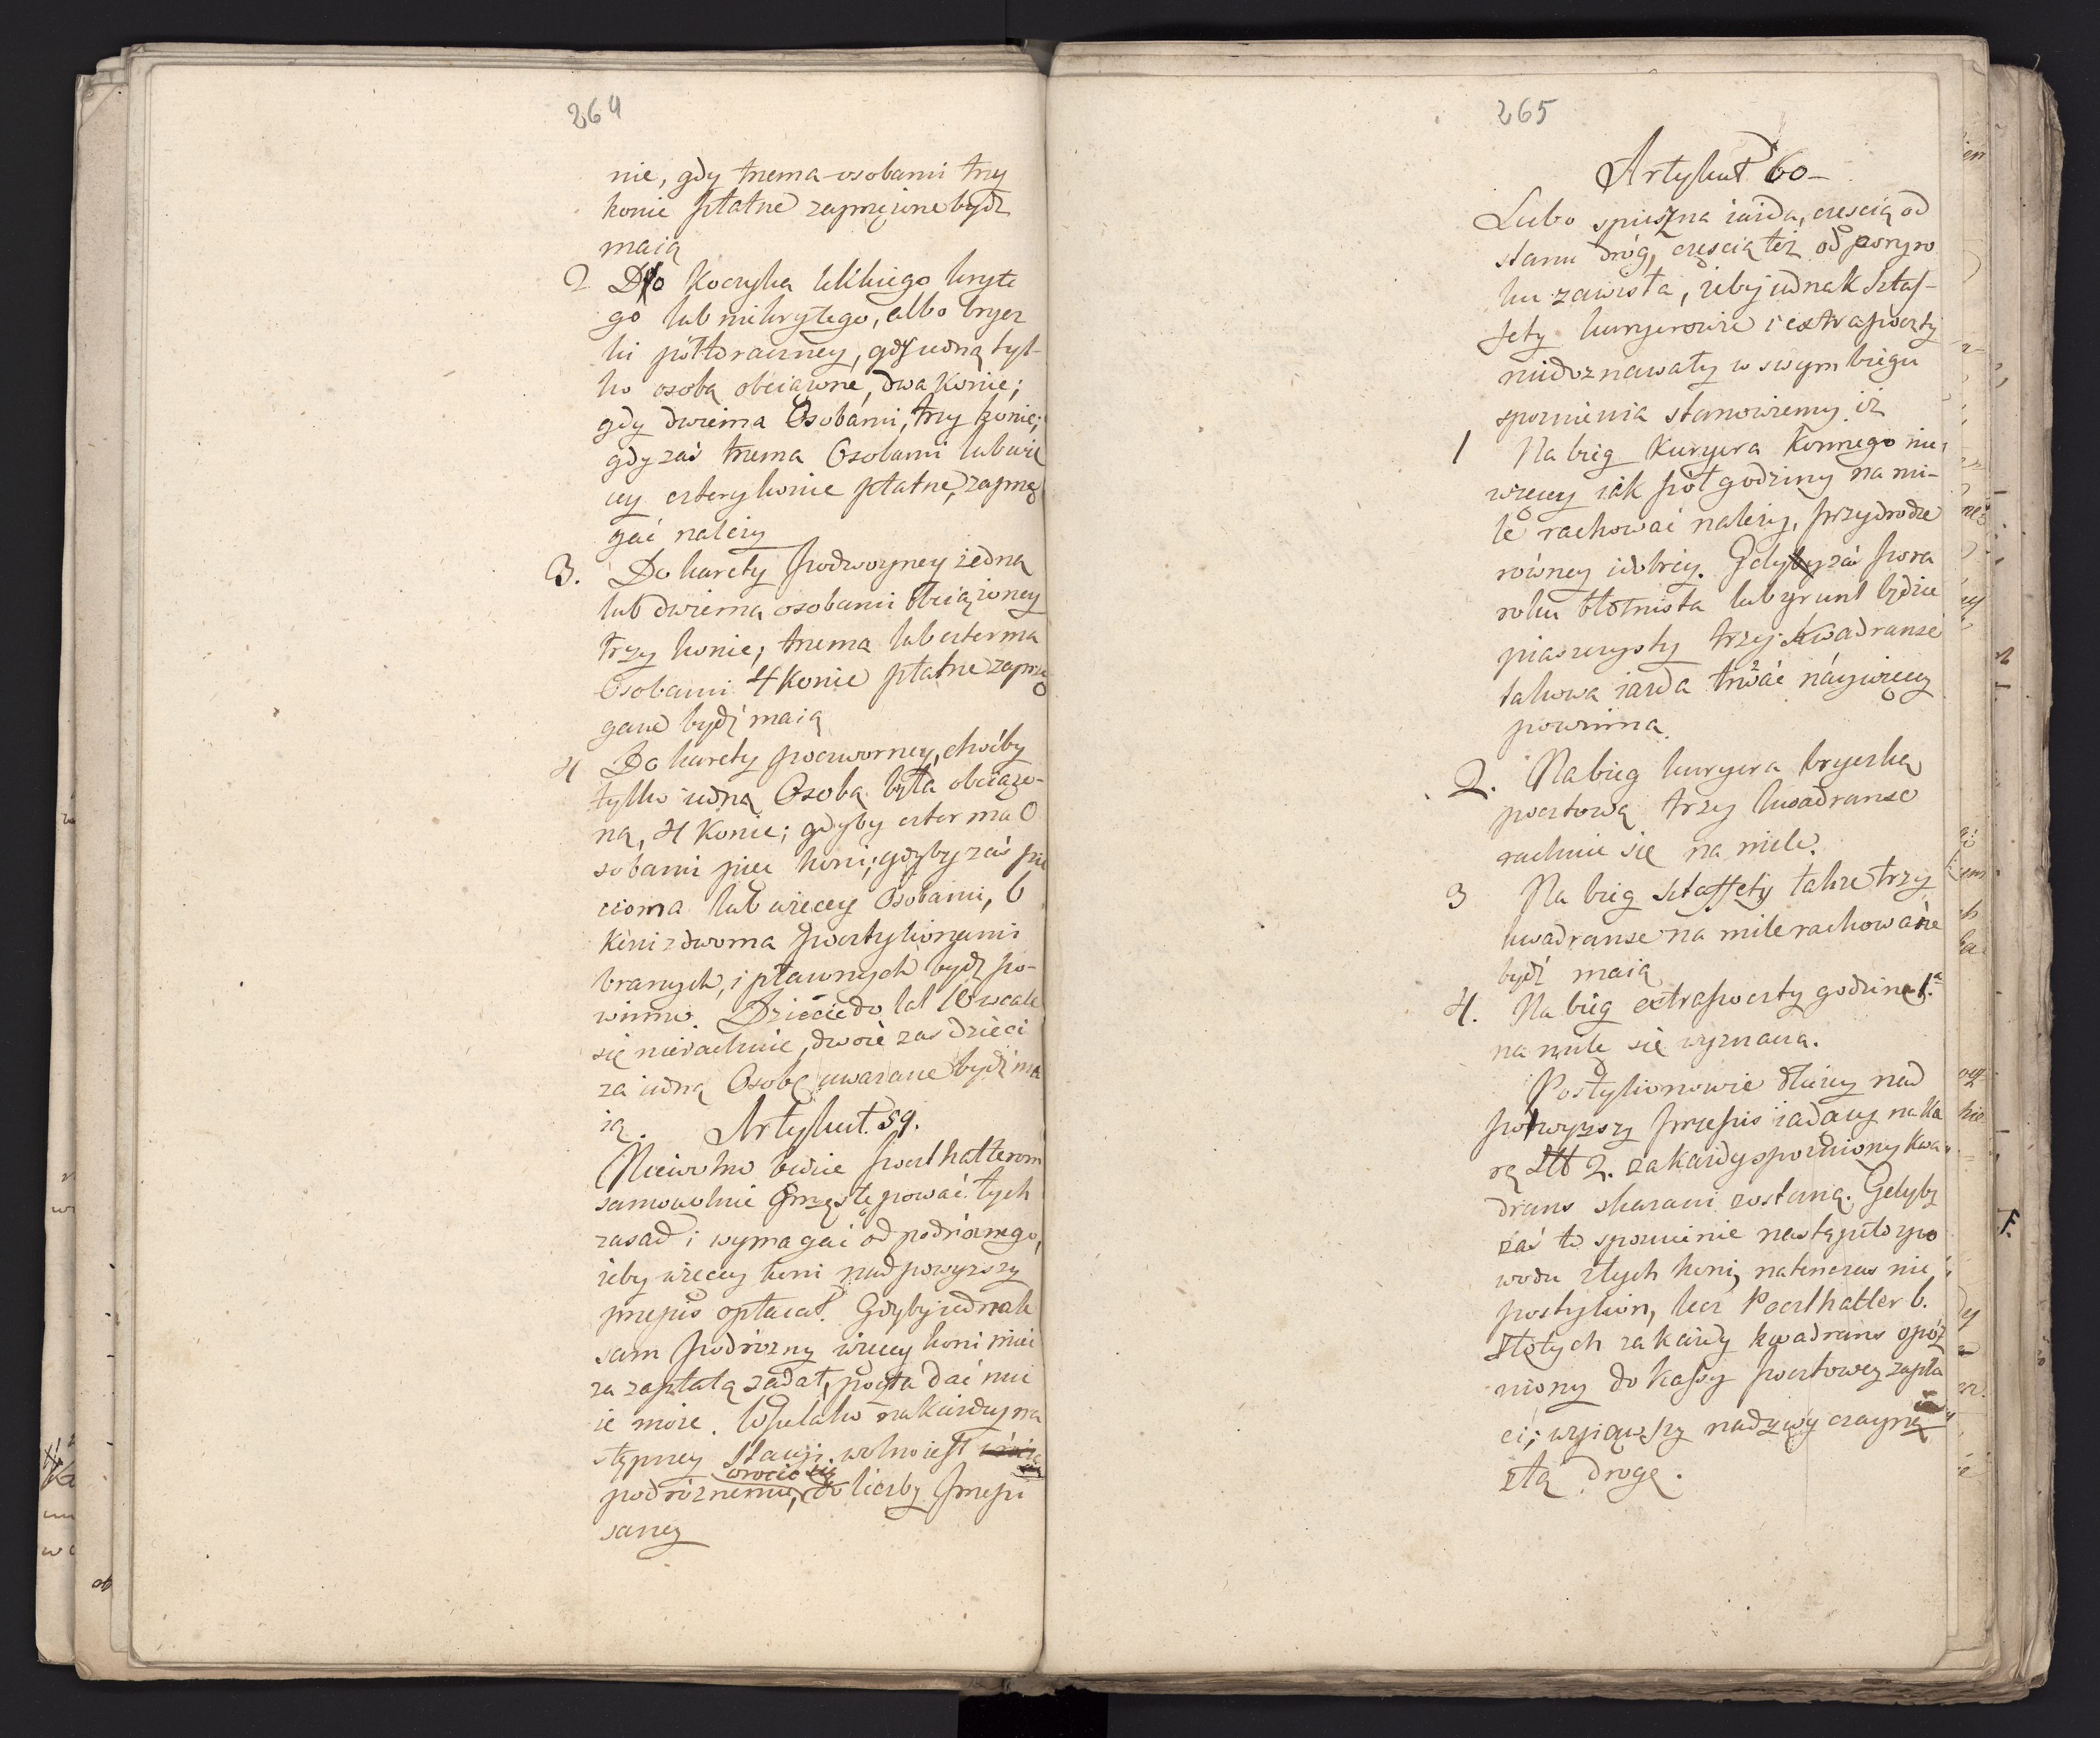 264
nie, gdy trzema osobami trzy
konie płatne zaprzężone bydz
maią
2 Do Koczyka lekkiego kryte
go lub niekrytego, albo brycz
ki półtoraczney, gdy iedną tyl-
ko osobą obciążone, dwa konie;
gdy dwiema Osobami, trzy konie;
gdy zaś trzema Osobami lub wię
cey cztery konie płatne, zaprzę
gać należy
3. Do karety podwoyney iedną
lub dwiema osobami obciążoney
trzy konie; trzema lub czterma
Osobami 4 konie płatne zaprzę
gane bydź maią
4 Do karety poczworney, choćby
tylko iedną Osobą była obciążo-
ną, 4 Konie; gdyby czterma O
sobami pięć koni; gdyby zaś pię
cioma lub więcey Osobami, 6
Koni z dwoma pocztylionami
branych, i płatnych bydz po-
winno. Dziécie do lat 10 wcale
się nierachuie, dwoie zas dzieci
za iedną Osobę uważane bydź ma
ią. Artykuł. 59.
Niewolno będzie poczthalterom
samowolnie przestępować tych
zasad i wymagać od podróżnego,
żeby więcey koni nad powyższy
przepis opłacał. Gdyby iednak
sam podróżny więcey koni mieć
za zapłatą żądał, poczta dać mu
ie może. Wszelako na każdey na
stępney stacyi wolno iest
wrocić się
podróżnemu, do liczby przepi
saney
265
Artykuł 60-
Lubo spieszna iazda, częscią od
stanu dróg, częscią też od pory ro
ku zawisła, żeby iednak Sztaf-
fety kuryerowie i extrapoczty
niedoznawały w swym biegu
spoznienia stanowiemy iż
1 Na bieg Kuryera konnego nie
więcey iak pół godziny na mi-
lę rachować należy, przy drodze
równey i dobrey. Gdy zaś pora
roku błotnista lub grunt będzie
piaszczysty trzy kwadranse
takowa iazda trwać náywięcey
powinna.
2. Na bieg kuryera bryczką
pocztową trzy kwadranse
rachuie się na milę.
3 Na bieg sztaffety także trzy
kwadranse na milę rachowane
bydź maią
4. Na bieg extrapoczty godzinę 1.ą
na milę się wyznacza.
Postylionowie dłużey nad
powyższy przepis iadący na ka
rę Złł 2. za każdy spozniony kwa
drans skazani zostaną. Gdyby
zaś to spoznienie nastąpiło z po
wodu złych koni, natenczas nie
postylion, lecz Poczthalter 6.
złotych za każdy kwadrans opóź
niony do kassy pocztowey zapła
ci; wyiąwszy nadzwyczayną
złą drogę.